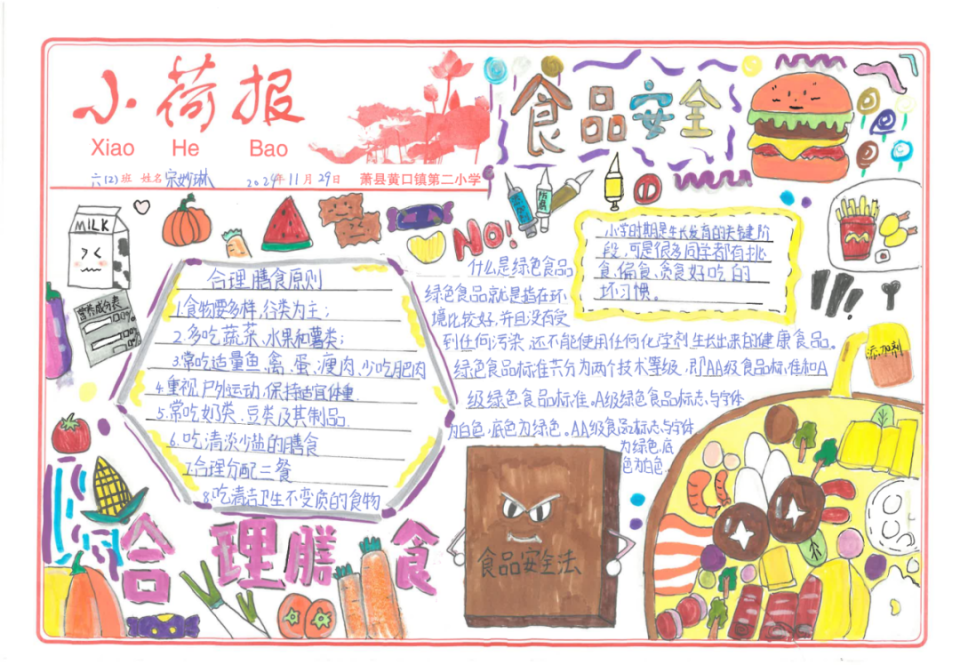 小荷报
Xiao He Bao
六(2)班 姓名 宋妙琳 2024年11月29日 萧县黄口镇第二小学
食品安全
MILK
营养成分表
NO!
合理膳食原则
1.食物要多样,谷类为主;
2.多吃蔬菜、水果和薯类;
3.常吃适量鱼、禽、蛋、瘦肉,少吃肥肉
4.重视户外运动,保持适宜体重
5.常吃奶类、豆类及其制品
6.吃清淡少盐的膳食
7.合理分配三餐
8.吃清洁卫生不变质的食物
小学时期是生长发育的关键阶
段,可是很多同学都有挑
食、偏食、贪食好吃的
坏习惯。
什么是绿色食品
绿色食品就是指在环
境比较好,并且没有受
到任何污染,还不能使用任何化学剂生长出来的健康食品。
绿色食品标准共分为两个技术等级,即AA级食品标准和A
级绿色食品标准。A级绿色食品标志与字体
为白色,底色为绿色。AA级食品标志与字体
为绿色,底
色为白色
添加剂
食品安全法
合理膳食